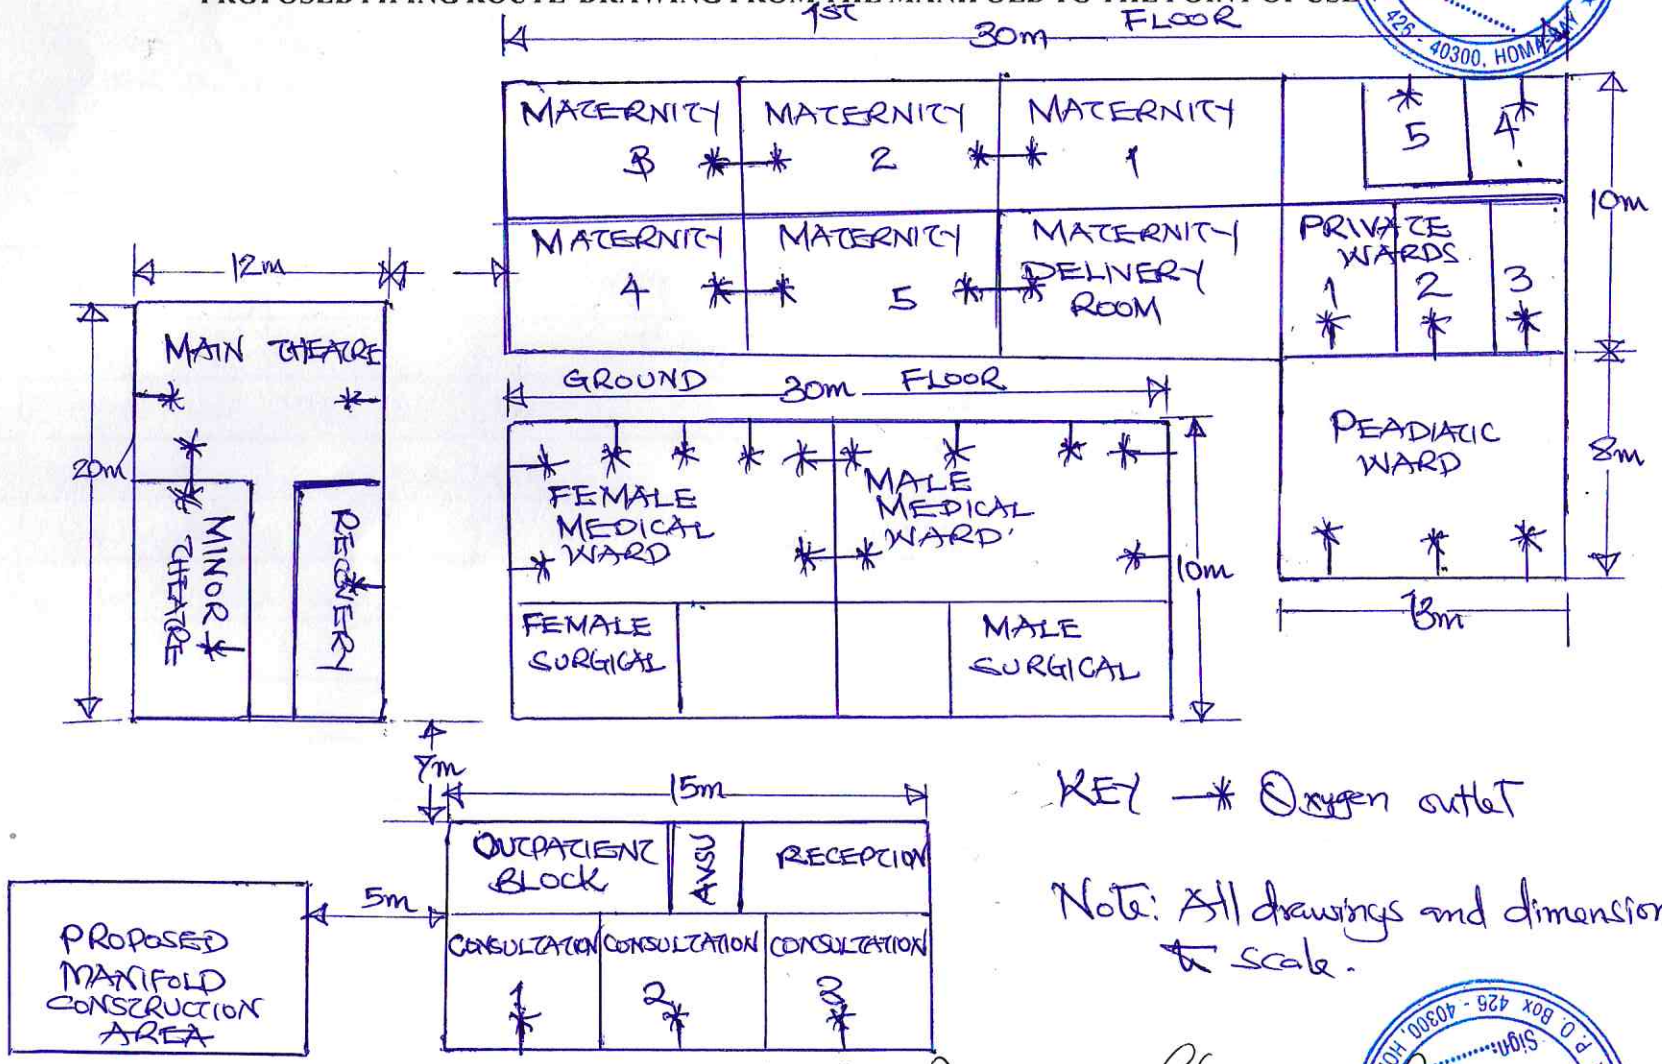 PROPOSED PIPING ROUTE DRAWING FROM THE MANIFOLD TO THE POINT OF USE
1ST FLOOR
30m
426 - 40300, HOMA-BAY
MATERNITY 3
MATERNITY 2
MATERNITY 1
5
4
10m
MATERNITY 4
MATERNITY 5
MATERNITY
DELIVERY
ROOM
PRIVATE
WARDS
1
2
3
12m
20m
MAIN THEATRE
MINOR
THEATRE
RECOVERY
GROUND FLOOR
30m
FEMALE
MEDICAL
WARD
MALE
MEDICAL
WARD
10m
FEMALE
SURGICAL
MALE
SURGICAL
PEADIATIC
WARD
8m
13m
7m
15m
OUTPATIENT
BLOCK
AVSU
RECEPTION
5m
CONSULTATION
1
CONSULTATION
2
CONSULTATION
3
PROPOSED
MANIFOLD
CONSTRUCTION
AREA
KEY Oxygen outlet
Note: All drawings and dimension
to scale.
P. O. Box 426 - 40300, HO
Sign: